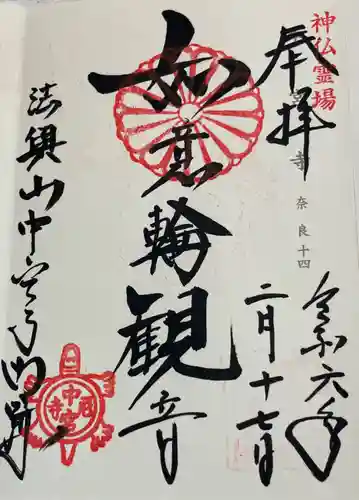 神仏霊場
奉拝
寺 奈良十四
令和六年
二月十七日
如意輪観音
法興山中宮寺門跡
中宮寺